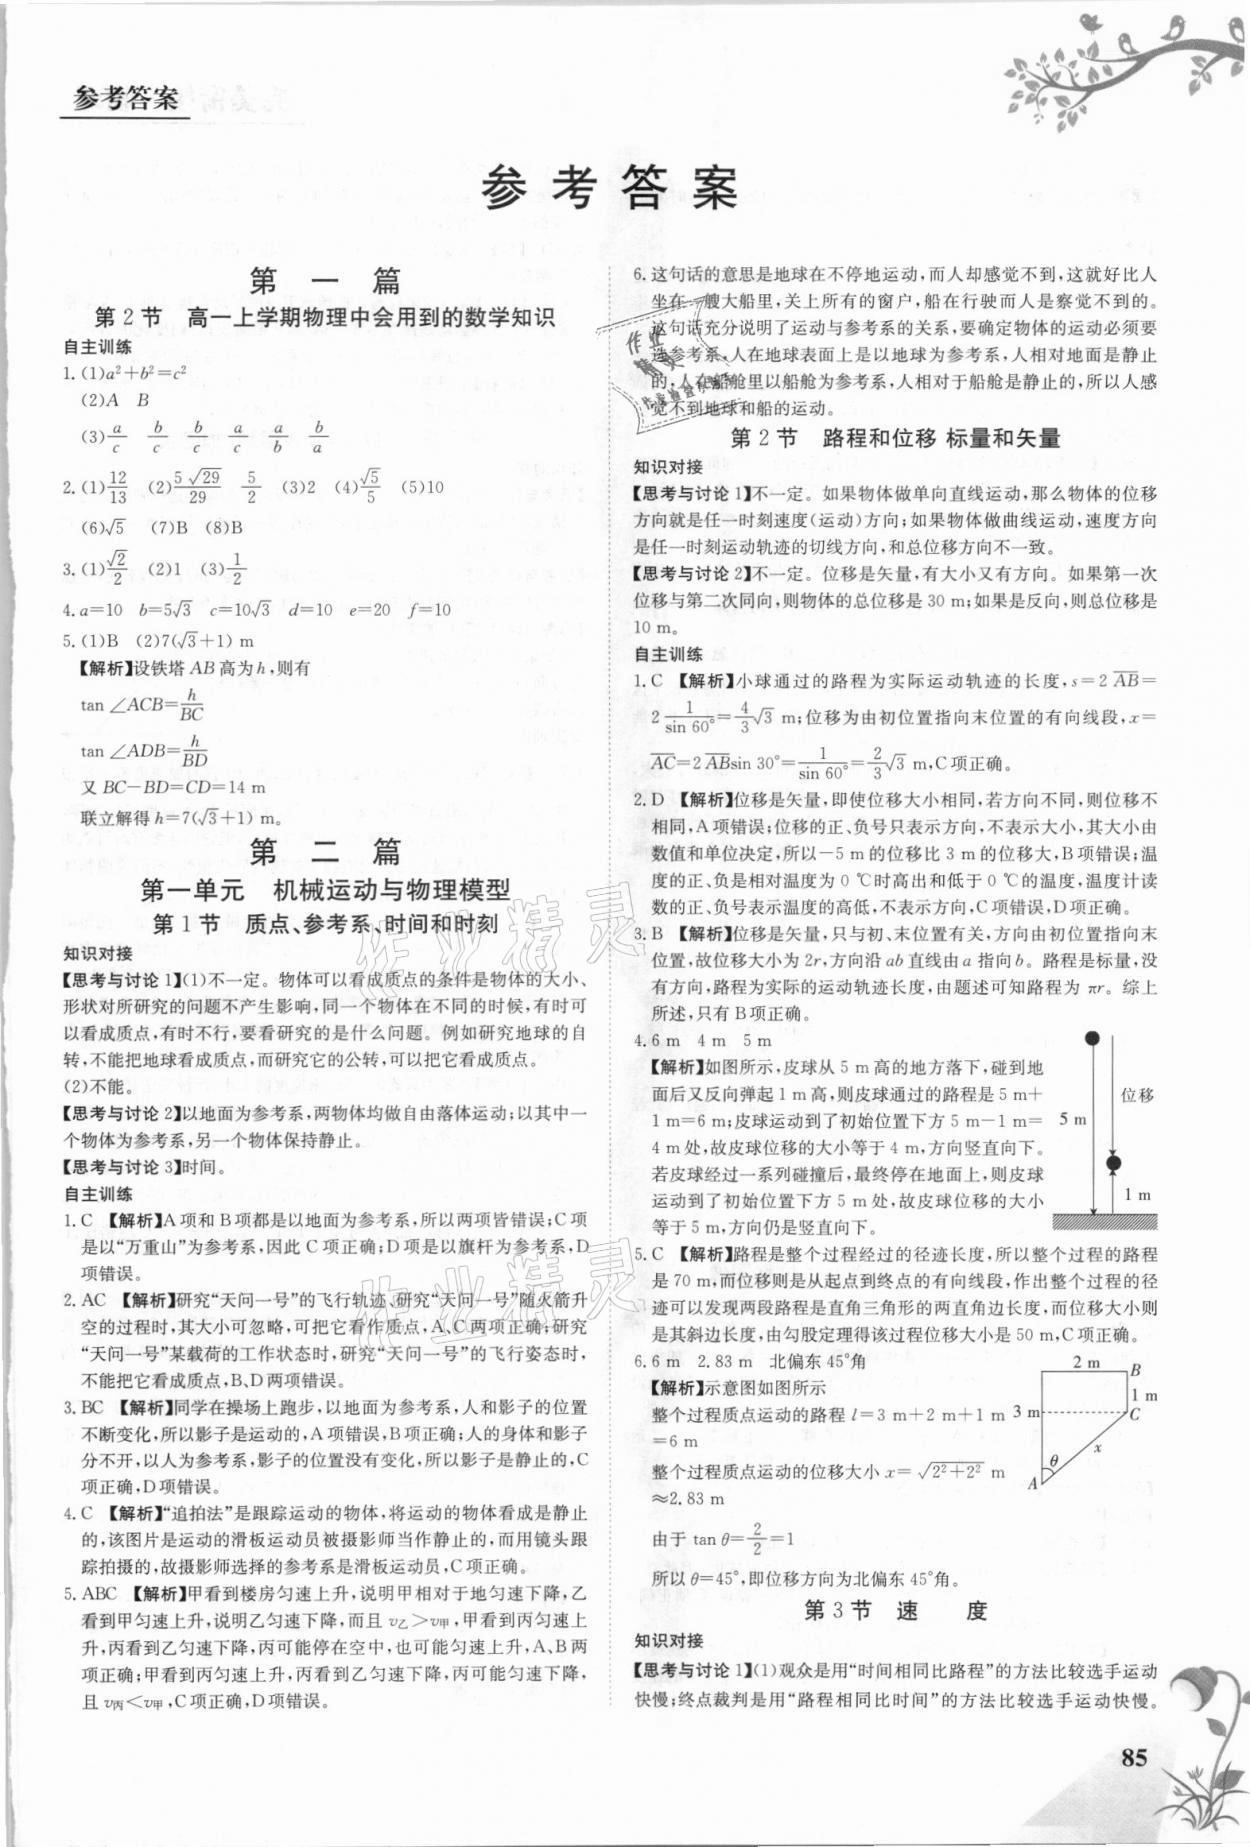 参考答案
参考答案
第一篇
第2节 高一上学期物理中会用到的数学知识
自主训练
1. (1)a²+b²=c²
(2)A B
(3)a/c b/c b/c a/c a/b b/a
2. (1)12/13 (2)5√29/29 5/2 (3)2 (4)√5/5 (5)10
(6)√5 (7)B (8)B
3. (1)√2/2 (2)1 (3)1/2
4. a=10 b=5√3 c=10√3 d=10 e=20 f=10
5. (1)B (2)7(√3+1) m
【解析】设铁塔AB高为h,则有
tan∠ACB=h/BC
tan∠ADB=h/BD
又BC-BD=CD=14 m
联立解得h=7(√3+1) m。
第二篇
第一单元 机械运动与物理模型
第1节 质点、参考系、时间和时刻
知识对接
【思考与讨论1】(1)不一定。物体可以看成质点的条件是物体的大小、
形状对所研究的问题不产生影响,同一个物体在不同的时候,有时可
以看成质点,有时不行,要看研究的是什么问题。例如研究地球的自
转,不能把地球看成质点,而研究它的公转,可以把它看成质点。
(2)不能。
【思考与讨论2】以地面为参考系,两物体均做自由落体运动;以其中一
个物体为参考系,另一个物体保持静止。
【思考与讨论3】时间。
自主训练
1. C 【解析】A项和B项都是以地面为参考系,所以两项皆错误;C项
是以“万重山”为参考系,因此C项正确;D项是以旗杆为参考系,D
项错误。
2. AC 【解析】研究“天问一号”的飞行轨迹、研究“天问一号”随火箭升
空的过程时,其大小可忽略,可把它看作质点,A、C两项正确;研究
“天问一号”某载荷的工作状态时,研究“天问一号”的飞行姿态时,
不能把它看成质点,B、D两项错误。
3. BC 【解析】同学在操场上跑步,以地面为参考系,人和影子的位置
不断变化,所以影子是运动的,A项错误,B项正确;人的身体和影子
分不开,以人为参考系,影子的位置没有变化,所以影子是静止的,C
项正确,D项错误。
4. C 【解析】“追拍法”是跟踪运动的物体,将运动的物体看成是静止
的,该图片是运动的滑板运动员被摄影师当作静止的,而用镜头跟
踪拍摄的,故摄影师选择的参考系是滑板运动员,C项正确。
5. ABC 【解析】甲看到楼房匀速上升,说明甲相对于地匀速下降,乙
看到甲匀速上升,说明乙匀速下降,而且v乙>v甲,甲看到丙匀速上
升,丙看到乙匀速下降,丙可能停在空中,也可能匀速上升,A、B两
项正确;甲看到丙匀速上升,丙看到乙匀速下降,丙可能匀速下降,
且v丙<v甲,C项正确,D项错误。
6. 这句话的意思是地球在不停地运动,而人却感觉不到,这就好比人
坐在一艘大船里,关上所有的窗户,船在行驶而人是察觉不到的。
这句话充分说明了运动与参考系的关系,要确定物体的运动必须要
选参考系,人在地球表面上是以地球为参考系,人相对地面是静止
的,人在船舱里以船舱为参考系,人相对于船舱是静止的,所以人感
觉不到地球和船的运动。
第2节 路程和位移 标量和矢量
知识对接
【思考与讨论1】不一定。如果物体做单向直线运动,那么物体的位移
方向就是任一时刻速度(运动)方向;如果物体做曲线运动,速度方向
是任一时刻运动轨迹的切线方向,和总位移方向不一致。
【思考与讨论2】不一定。位移是矢量,有大小又有方向。如果第一次
位移与第二次同向,则物体的总位移是30 m;如果是反向,则总位移是
10 m。
自主训练
1. C 【解析】小球通过的路程为实际运动轨迹的长度,s=2 A̅B̅=
2 1/sin 60°=4/3√3 m;位移为由初位置指向末位置的有向线段,x=
A̅C̅=2 A̅B̅sin 30°=1/sin 60°=2/3√3 m,C项正确。
2. D 【解析】位移是矢量,即使位移大小相同,若方向不同,则位移不
相同,A项错误;位移的正、负号只表示方向,不表示大小,其大小由
数值和单位决定,所以-5 m的位移比3 m的位移大,B项错误;温
度的正、负是相对温度为0 ℃时高出和低于0 ℃的温度,温度计读
数的正、负号表示温度的高低,不表示方向,C项错误,D项正确。
3. B 【解析】位移是矢量,只与初、末位置有关,方向由初位置指向末
位置,故位移大小为2r,方向沿ab直线由a指向b。路程是标量,没
有方向,路程为实际的运动轨迹长度,由题述可知路程为πr。综上
所述,只有B项正确。
4. 6 m 4 m 5 m
【解析】如图所示,皮球从5 m高的地方落下,碰到地
面后又反向弹起1 m高,则皮球通过的路程是5 m+
1 m=6 m;皮球运动到了初始位置下方5 m-1 m=
4 m处,故皮球位移的大小等于4 m,方向竖直向下。
若皮球经过一系列碰撞后,最终停在地面上,则皮球
运动到了初始位置下方5 m处,故皮球位移的大小
等于5 m,方向仍是竖直向下。
5 m
位移
1 m
5. C 【解析】路程是整个过程经过的径迹长度,所以整个过程的路程
是70 m,而位移则是从起点到终点的有向线段,作出整个过程的径
迹可以发现两段路程是直角三角形的两直角边长度,而位移大小则
是其斜边长度,由勾股定理得该过程位移大小是50 m,C项正确。
6. 6 m 2.83 m 北偏东45°角
【解析】示意图如图所示
整个过程质点运动的路程l=3 m+2 m+1 m
=6 m
整个过程质点运动的位移大小x=√2²+2² m
≈2.83 m
由于tan θ=2/2=1
所以θ=45°,即位移方向为北偏东45°角。
2 m
B
1 m
3 m
C
x
θ
A
第3节 速度
知识对接
【思考与讨论1】(1)观众是用“时间相同比路程”的方法比较选手运动
快慢;终点裁判是用“路程相同比时间”的方法比较选手运动快慢。
85
作业精灵
作业精灵
作业精灵